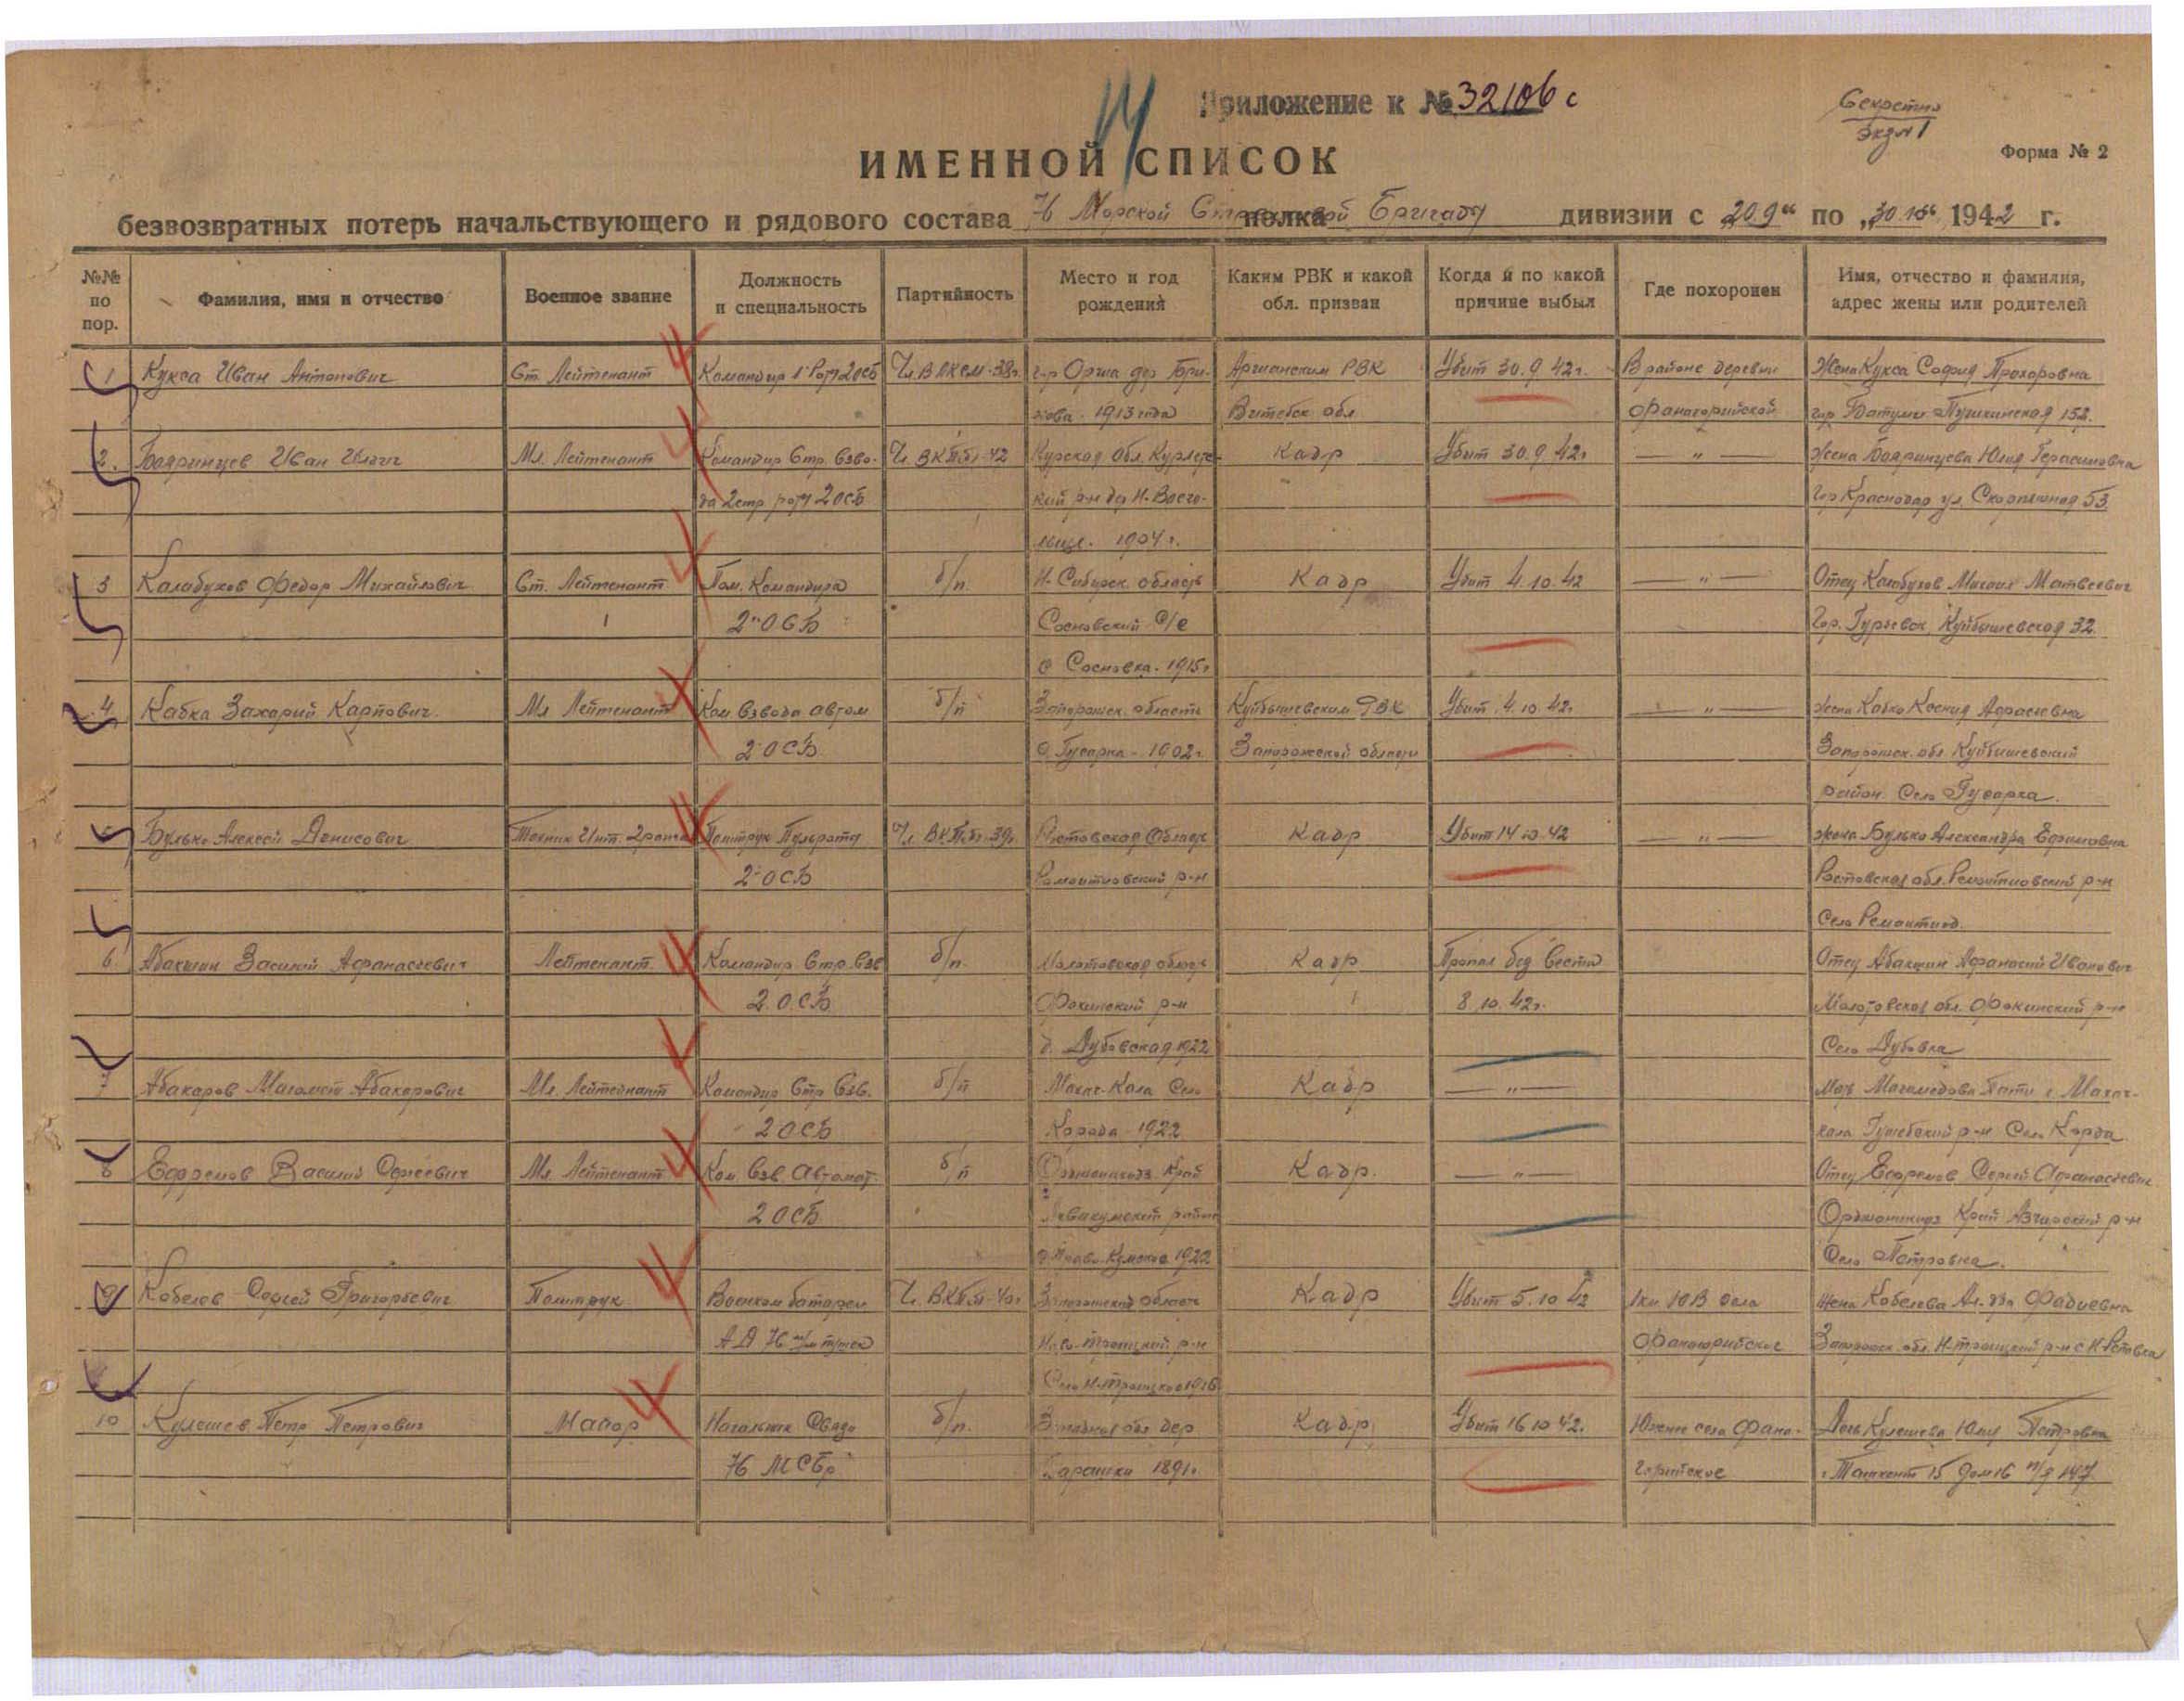 Приложение к № 32106 с
Секретно
экз № 1
Форма № 2
ИМЕННОЙ СПИСОК
безвозвратных потерь начальствующего и рядового состава 76 Морской Стрелковой полка Бригады дивизии с „20 9“ по „30 10“ 1942 г.
№№ по пор. Фамилия, имя и отчество Военное звание Должность и специальность Партийность Место и год рождения Каким РВК и какой обл. призван Когда и по какой причине выбыл Где похоронен Имя, отчество и фамилия, адрес жены или родителей
1 Кукса Иван Антонович Ст. Лейтенант Командир 1 Роты 2 ОСБ Чл. ВЛКСМ-38г. гор Орша дер Бри- Аршанским РВК Убит 30.9.42г. В районе деревни Жена Кукса София Прохоровна
1913 года Витебск обл Фанагорийской гор Батуми Пушкинская 152.
2. Бояринцев Иван Ильич Мл. Лейтенант Командир Стр. Взво- Чл. ВКПб-42 Курская Обл. Кадр Убит 30.9.42г — " — Жена Бояринцева Юлия Герасимовна
да 2 стр. роты 2 ОСБ кий р-н дер Н. гор Краснодар ул. 53
1904 г.
3 Калабухов Федор Михайлович Ст. Лейтенант Пом. Командира б/п. Н-Сибирск. область Кадр Убит 4.10.42 — " — Отец Калабухов Михаил Матвеевич
2 ОСБ Сосновский с/с Гор. Гурьевск, Куйбышевская 32.
с Сосновка-1915г
4. Кабка Захарий Карпович. Мл Лейтенант Ком Взвода автом б/п Запорожск. область Куйбышевским РВК Убит 4.10.42г — " — жена Кабка Ксения
2 ОСБ С. Гусарка - 1902г. Запорожской области Запорожск. обл Куйбышевский
район. Село Гусарка.
5 Булько Алексей Денисович Техник Инт. 2 ранга Политрук Пульроты Чл. ВКПб-39г. Ростовская Область Кадр Убит 14 10.42 — " — жена Булько Александра Ефимовна
2 ОСБ Ремонтновский р-н Ростовская обл. Ремонтновский р-н
Село
6 Абакшин Василий Афанасьевич Лейтенант Командир Стр. Взв б/п. Молотовская область Кадр Пропал без вести Отец Абакшин Афанасий Иванович
2 ОСБ Фокинский р-н 8.10.42г. Молотовская обл. Фокинский р-н
д. Дубовская 1922 Село
7 Абакаров Магомет Абакарович Мл. Лейтенант Командир Стр Взв. б/п Махач-Кала Село Кадр — " — Мать Магомедова Пати г. Махач-
2 ОСБ Корода - 1922 кала р-н Село
8 Ефремов Василий Сергеевич Мл. Лейтенант Ком. Взв. Автомат. б/п Край Кадр. — " — Отец Ефремов Сергей Афанасьевич
2 ОСБ район Край р-н
1922 Село Петровка.
9 Кобелев Сергей Григорьевич Политрук Военком батареи Чл. ВКПб-40г Запорожская область Кадр Убит 5.10 42 1 км ЮВ села жена Кобелева Фадиевна
АД 76 м/м пушек Ново-Троицкий р-н Фанагорийское Запорожск. обл. Н-Троицкий р-н
Село Н-Троицкое 1916
10 Кулешев Петр Петрович Майор Начальник Связи б/п. Западная обл дер Кадр Убит 16 10 42. Южнее села Фана- Дочь Кулешева Петровна
76 МСБр Барашки 1891г. горийское г. Ташкент 15 дом 16 п/я 147